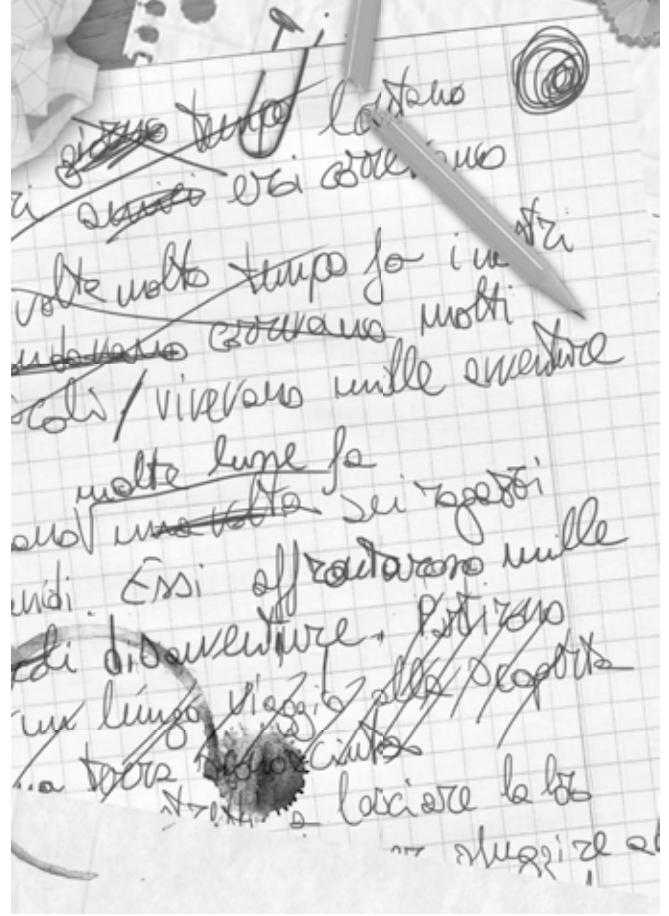 giorno tempo lontano
amici eroi correvano
volte molto tempo fa in
correvano molti
vivevano mille avventure
molte lune fa
una volta sei ragazzi
Essi affrontarono mille
di disavventure. Partirono
un lungo viaggio alla scoperta
terra sconosciuta
a lasciare la loro
sfuggire